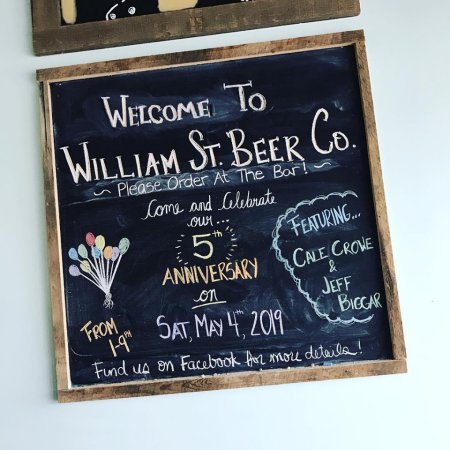 Welcome To
William St. Beer Co.
~ Please Order At The Bar! ~
Come and Celebrate
our...
5th
Anniversary
on
Sat, May 4th, 2019
From
1-9PM
Featuring...
Cale Crowe
&
Jeff
Biggar
Find us on Facebook for more details!